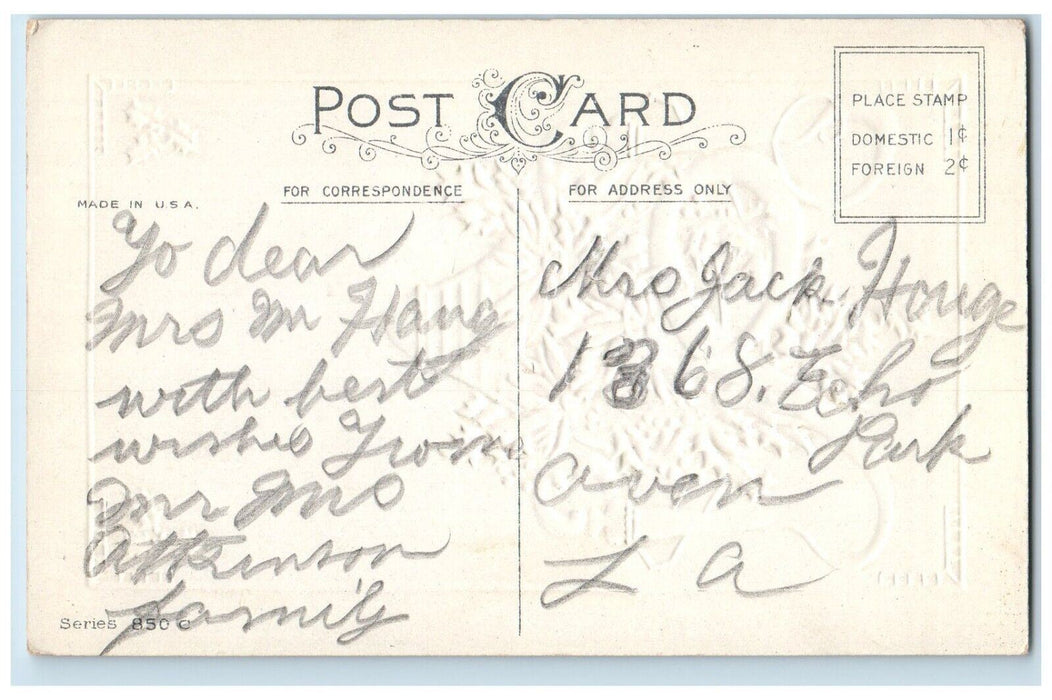 POST CARD
PLACE STAMP
DOMESTIC 1¢
FOREIGN 2¢
FOR CORRESPONDENCE
FOR ADDRESS ONLY
MADE IN U.S.A.
To dear
Mrs Mr Haug
with best
wishes From
Mr. Mrs
Atkinson
family
Series 850 C
Mrs Jack Houge
1368. Echo
Park
Aven
L A